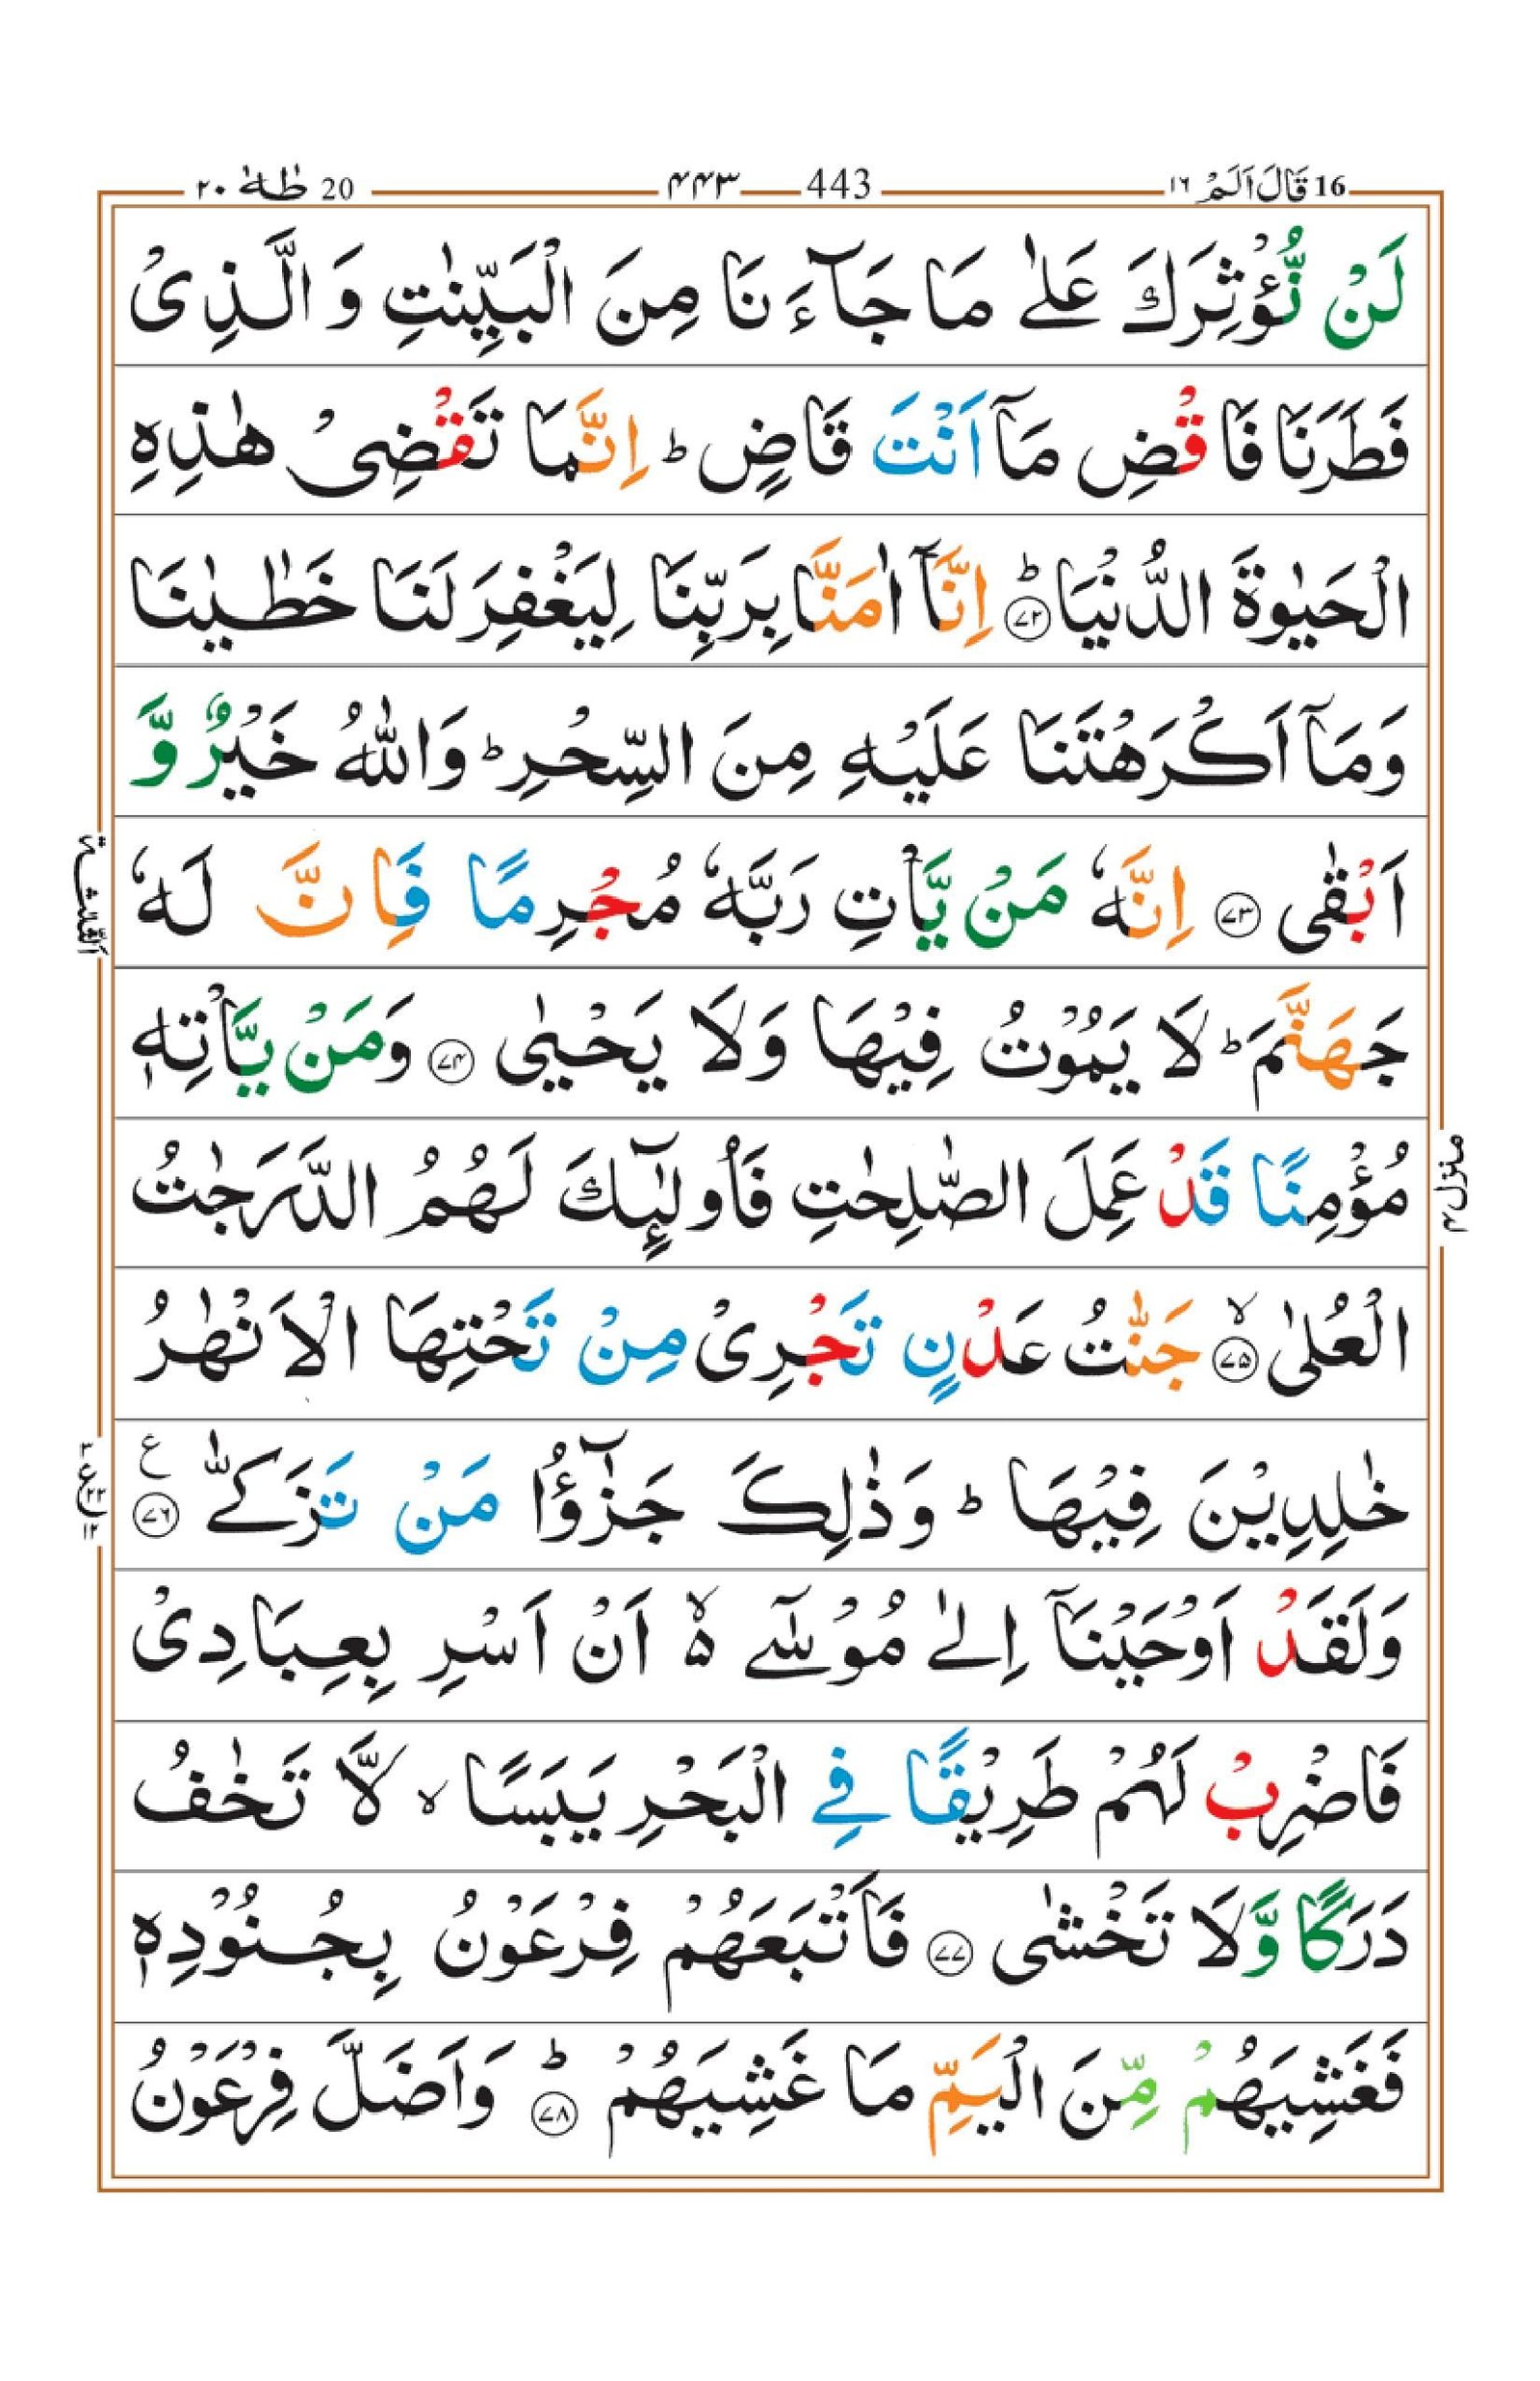 16 قَالَ اَلَمْ ١٦ 443 ۴۴۳ 20 طٰهٰ ٢٠
لَنْ نُّؤْثِرَكَ عَلٰی مَا جَآءَنَا مِنَ الْبَیِّنٰتِ وَ الَّذِیْ
فَطَرَنَا فَاقْضِ مَاۤ اَنْتَ قَاضٍ ؕ اِنَّمَا تَقْضِیْ هٰذِهِ
الْحَیٰوةَ الدُّنْیَا ؕ ﴿۷۲﴾ اِنَّاۤ اٰمَنَّا بِرَبِّنَا لِیَغْفِرَ لَنَا خَطٰیٰنَا
وَمَاۤ اَكْرَهْتَنَا عَلَیْهِ مِنَ السِّحْرِ ؕ وَاللّٰهُ خَیْرٌ وَّ
اَبْقٰی ﴿۷۳﴾ اِنَّهٗ مَنْ یَّاْتِ رَبَّهٗ مُجْرِمًا فَاِنَّ لَهٗ
جَهَنَّمَ ؕ لَا یَمُوْتُ فِیْهَا وَلَا یَحْیٰی ﴿۷۴﴾ وَمَنْ یَّاْتِهٖ
مُؤْمِنًا قَدْ عَمِلَ الصّٰلِحٰتِ فَاُولٰٓئِكَ لَهُمُ الدَّرَجٰتُ
الْعُلٰی ۙ ﴿۷۵﴾ جَنّٰتُ عَدْنٍ تَجْرِیْ مِنْ تَحْتِهَا الْاَنْهٰرُ
خٰلِدِیْنَ فِیْهَا ؕ وَذٰلِكَ جَزٰٓؤُا مَنْ تَزَكّٰی ﴿۷۶﴾ ع
وَلَقَدْ اَوْحَیْنَاۤ اِلٰی مُوْسٰۤی ۙ۬ اَنْ اَسْرِ بِعِبَادِیْ
فَاضْرِبْ لَهُمْ طَرِیْقًا فِی الْبَحْرِ یَبَسًا ۙ لَّا تَخٰفُ
دَرَكًا وَّلَا تَخْشٰی ﴿۷۷﴾ فَاَتْبَعَهُمْ فِرْعَوْنُ بِجُنُوْدِهٖ
فَغَشِیَهُمْ مِّنَ الْیَمِّ مَا غَشِیَهُمْ ؕ ﴿۷۸﴾ وَاَضَلَّ فِرْعَوْنُ
الثلثة
منزل ۴
ع ٣ ٢٢ ١٢